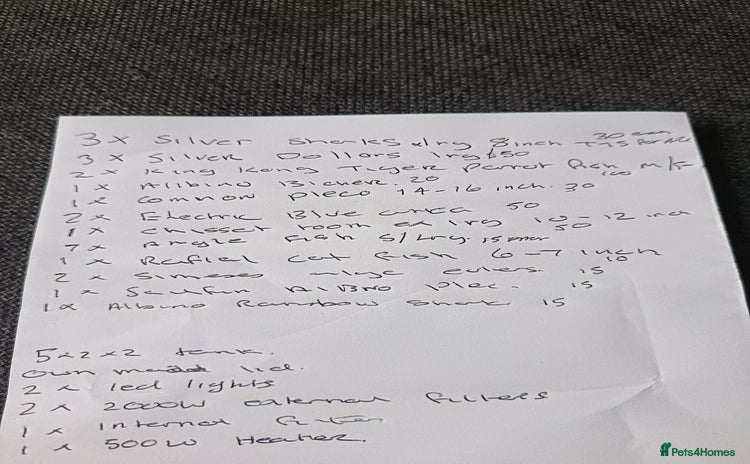 3 x Silver Sharks xlrg 8 inch 30 each 75 for All
3 x Silver Dollars lrg £50
2 x King Kong Tiger Parrot fish m/f 100
1 x Allbino Bicher. 20
1 x Common Pleco 14-16 inch. 30
2 x Electric Blue 50
1 x room ex lrg 10-12 inch 50
7 x Angle Fish s/Lrg. 15
1 x Cat fish 6-7 inch 10
2 x eaters 15
1 x AlBNO Plec. 15
1 x Albino Rainbow Shark 15
5x2x2 tank.
Own made lid.
2 x led lights
2 x 2000W external filters
1 x Internal filter
1 x 500W Heater.
Pets4Homes